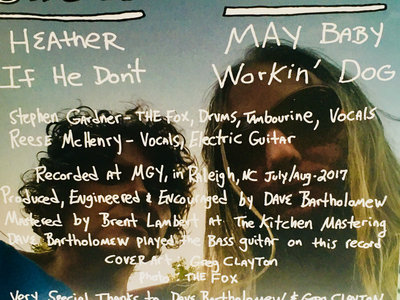 HEATHER
MAY BABY
If He Don't
Workin' Dog
Stephen Gardner - THE Fox, Drums, Tambourine, VOCALS
Reese McHenry - Vocals, Electric Guitar
Recorded at MGY, in Raleigh, NC July/Aug-2017
Produced, Engineered & Encouraged by DAVE Bartholomew
Mastered by Brent Lambert at The Kitchen Mastering
DAVE Bartholomew played the Bass guitar on this record
COVER Art: Greg CLAYTON
Photo: THE FOX
Very Special Thanks to Dave Bartholomew & Greg CLAYTON